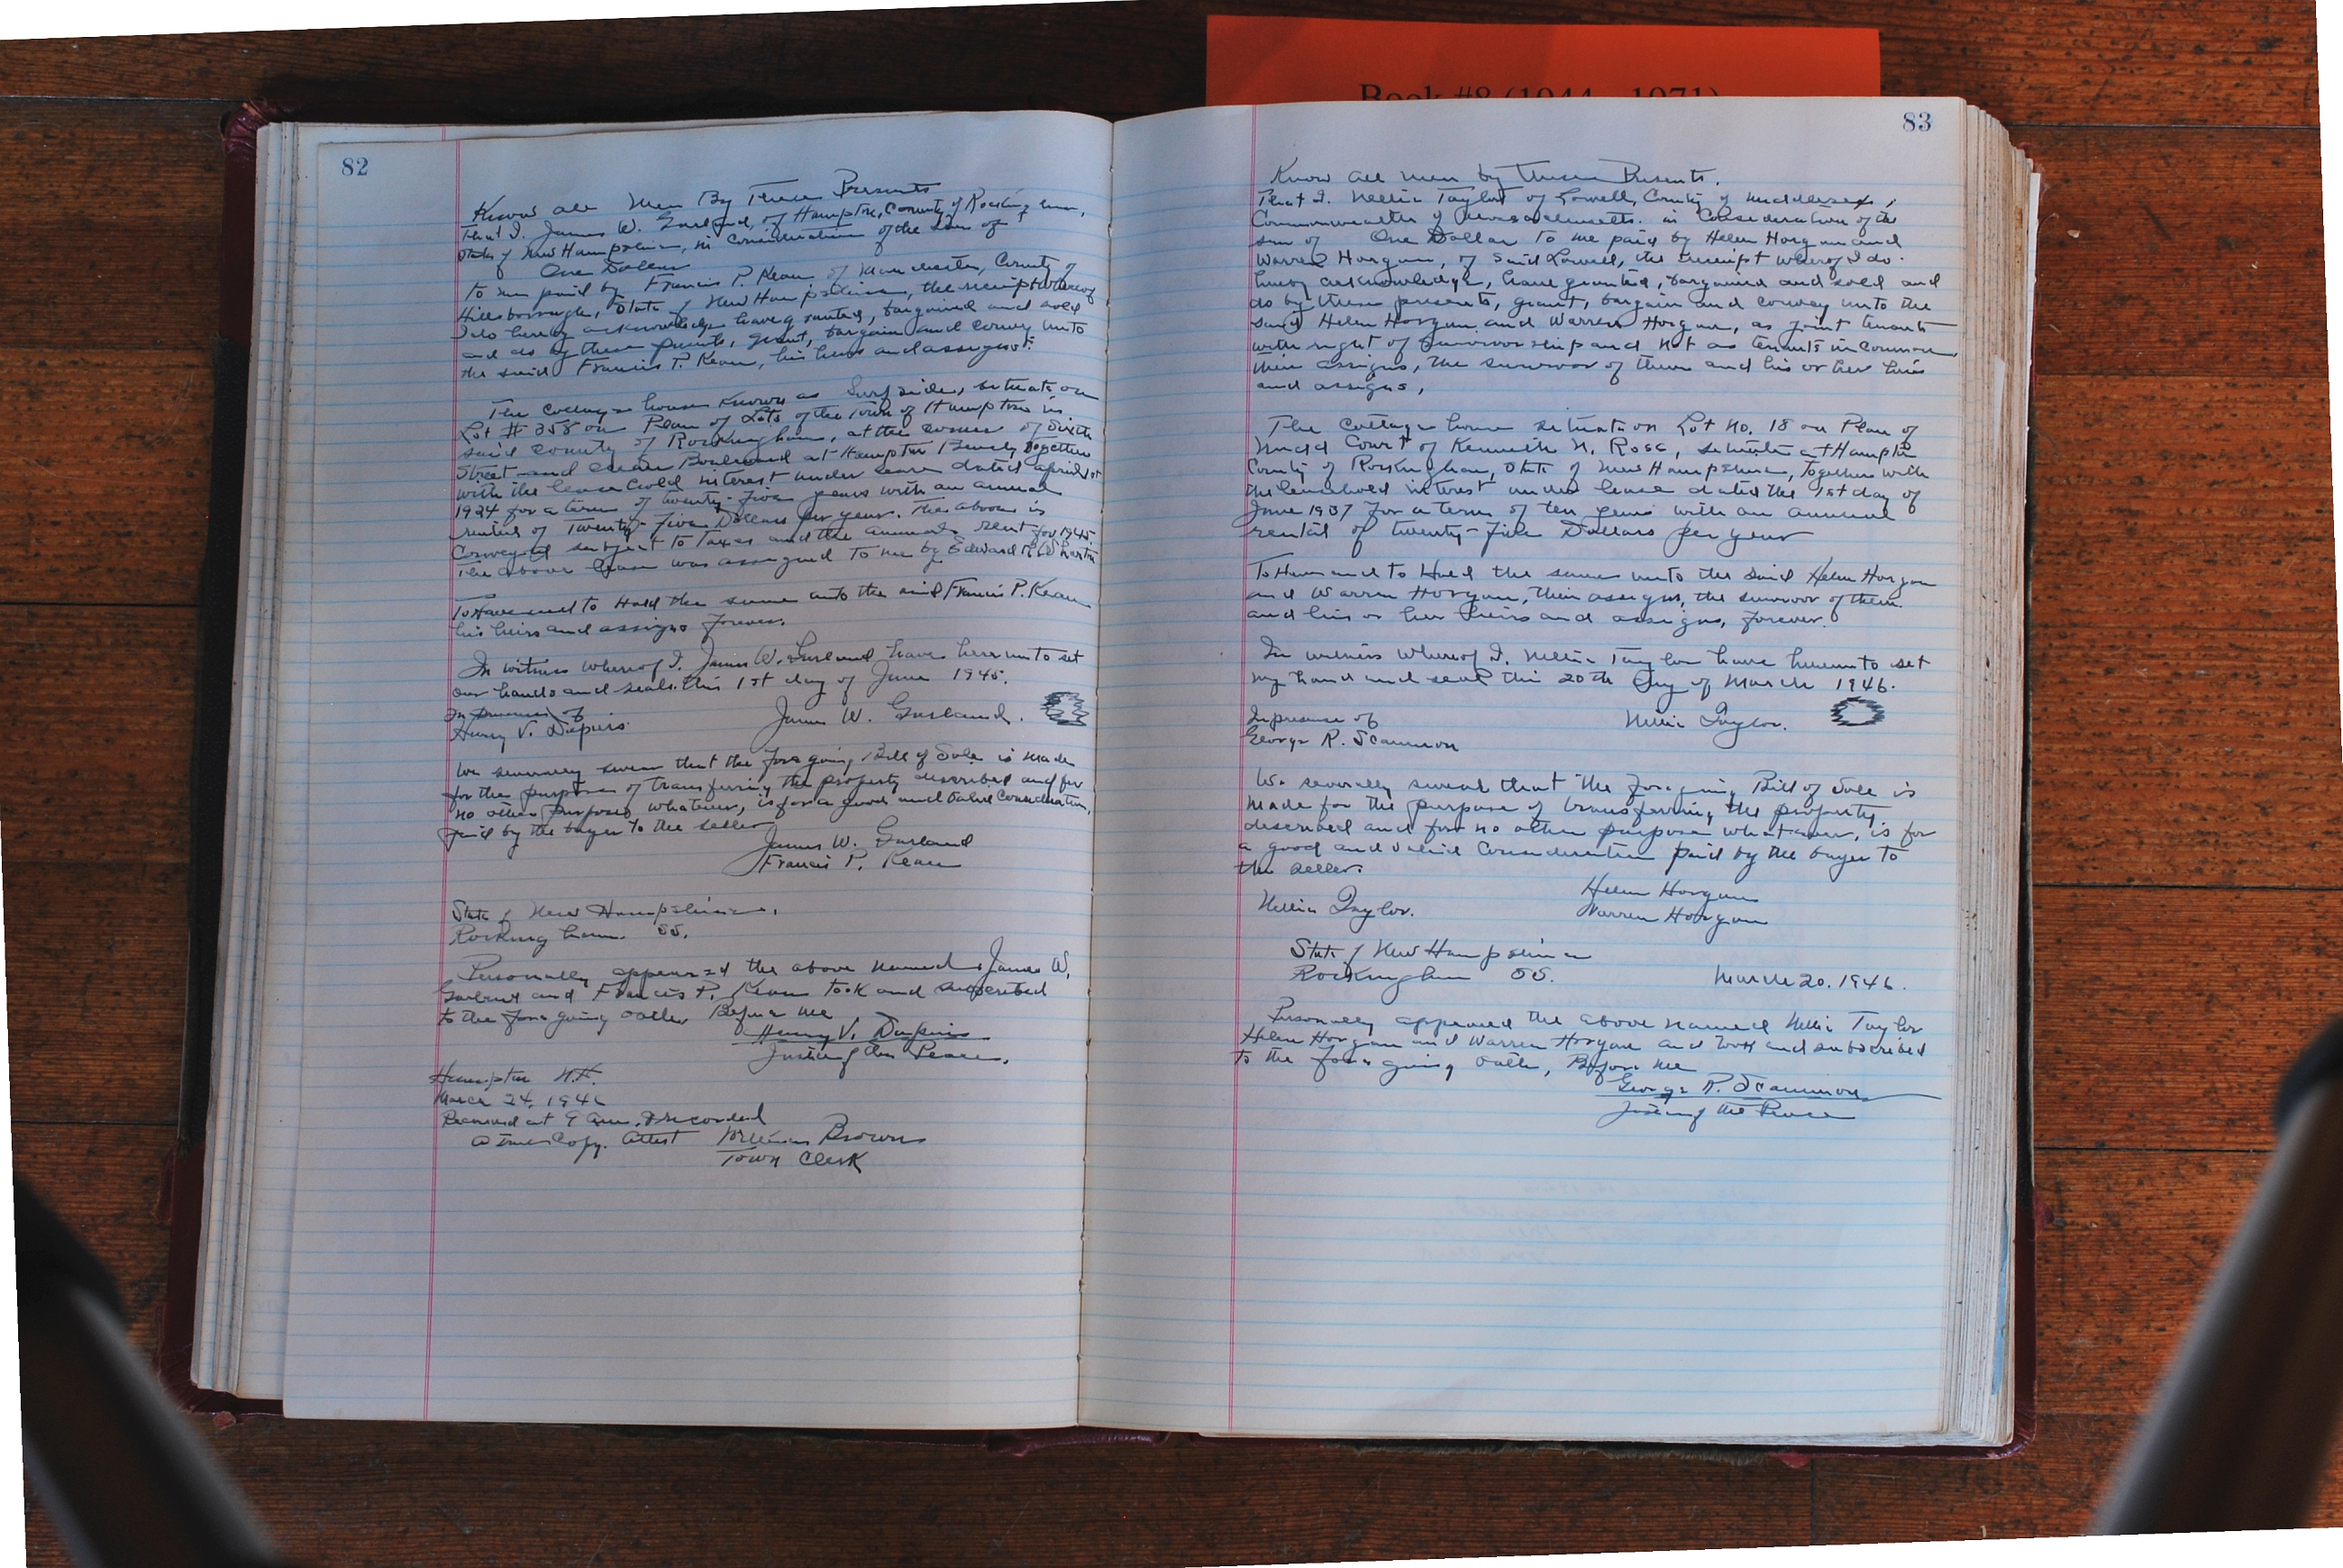 Book #8 (1944 - 1971)
82
Know all Men By These Presents
That I. James W. Garland, of Hampton, County of Rockingham,
State of New Hampshire, in consideration of the sum of
One Dollar
to me paid by Francis P. Kean of Manchester, County of
Hillsborough, State of New Hampshire, the receipt whereof
I do hereby acknowledge have granted, bargained and sold
and do by these presents, grant, bargain and convey unto
the said Francis P. Kean, his heirs and assigns:
The cottage house known as Surfside, situate on
Lot # 358 on Plan of Lots of the Town of Hampton in
said County of Rockingham, at the corner of Sixth
Street and Ocean Boulevard at Hampton Beach, Together
with the lease hold interest under lease dated April 1st
1924 for a term of twenty-five years with an annual
rental of Twenty-Five Dollars per year. The above is
Conveyed subject to taxes and the annual rent for 1945.
The above lease was assigned to me by Edward
To Have and to Hold the same unto the said Francis P. Kean
his heirs and assigns forever.
In witness whereof I. James W. Garland have hereunto set
our hands and seals this 1st day of June 1945.
In presence of
James W. Garland.
Harry V. Dupuis
We severally swear that the foregoing Bill of Sale is made
for the purpose of transferring the property described and for
no other purpose whatever, is for a good and valid consideration,
paid by the buyer to the seller
James W. Garland
Francis P. Kean
State of New Hampshire,
Rockingham. SS.
Personally appeared the above named James W.
Garland and Francis P. Kean took and subscribed
to the foregoing oath Before me
Henry V. Dupuis
Justice of the Peace.
Hampton N.H.
March 24, 1946
Received at 9 am. & recorded
a true Copy. Attest William Brown
Town Clerk
83
Know all men by these Presents.
That I. Nellie Taylor of Lowell, County of Middlesex,
Commonwealth of Massachusetts. in Consideration of the
sum of One Dollar to me paid by Helen Horgan and
Warren Horgan, of said Lowell, the receipt whereof I do
hereby acknowledge, have granted, bargained and sold and
do by these presents, grant, bargain and convey unto the
said Helen Horgan and Warren Horgan, as joint tenants
with right of survivorship and not as tenants in common
their assigns, the survivor of them and his or her heirs
and assigns,
The Cottage house situate on Lot No. 18 on Plan of
Court of Kenneth N. Ross, situate at Hampton
County of Rockingham, State of New Hampshire, Together with
the leasehold interest under lease dated the 1st day of
June 1937 for a term of ten years with an annual
rental of twenty-five Dollars per year
To Have and to Hold the same unto the said Helen Horgan
and Warren Horgan, their assigns, the survivor of them
and his or her heirs and assigns, forever.
In witness whereof I. Nellie Taylor have hereunto set
my hand and seal this 20th day of March 1946.
In presence of
Nellie Taylor.
George R. Scammon
We severally swear that the foregoing Bill of Sale is
made for the purpose of transferring the property
described and for no other purpose whatever, is for
a good and valid consideration paid by the buyer to
the seller.
Helen Horgan
Nellie Taylor. Warren Horgan
State of New Hampshire
Rockingham SS. March 20. 1946.
Personally appeared the above named Nellie Taylor
Helen Horgan and Warren Horgan and took and subscribed
to the foregoing oath, Before me
George R. Scammon
Justice of the Peace